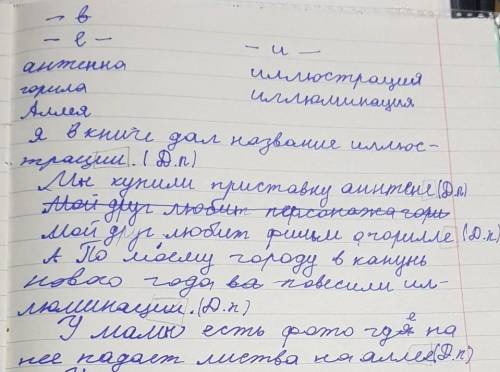 - в
- е -
- и -
антенна
иллюстрация
горила
иллюминация
Аллея
Я в книге дал название иллюс-
трации. (Д.п)
Мы купили приставку аннтене (Д.п)
Мой друг любит персонажа гори
Мой друг любит фильм о горилле (Д.п)
А По моему городу в канунь
нового года ва повесили ил-
люминации. (Д.п)
У мамы есть фото где на
нее падаст листва на аллея (Д.п)